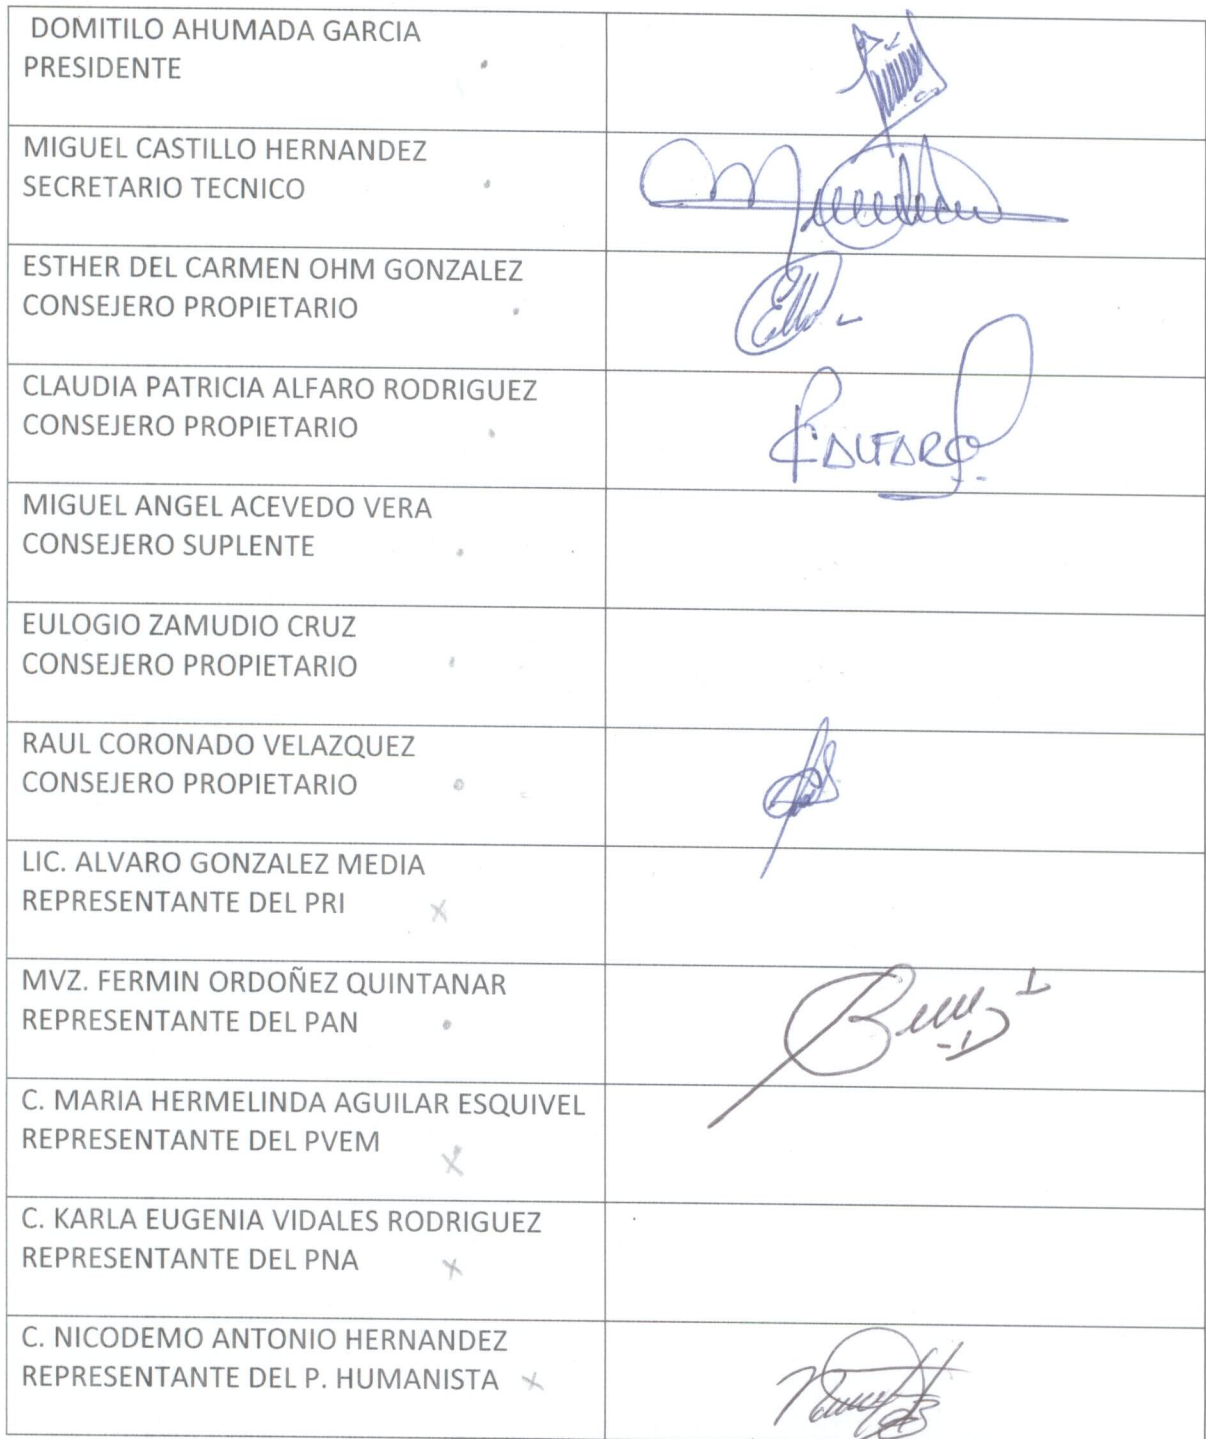 DOMITILO AHUMADA GARCIA
PRESIDENTE
MIGUEL CASTILLO HERNANDEZ
SECRETARIO TECNICO
ESTHER DEL CARMEN OHM GONZALEZ
CONSEJERO PROPIETARIO
CLAUDIA PATRICIA ALFARO RODRIGUEZ
CONSEJERO PROPIETARIO
ALFARO
MIGUEL ANGEL ACEVEDO VERA
CONSEJERO SUPLENTE
EULOGIO ZAMUDIO CRUZ
CONSEJERO PROPIETARIO
RAUL CORONADO VELAZQUEZ
CONSEJERO PROPIETARIO
LIC. ALVARO GONZALEZ MEDIA
REPRESENTANTE DEL PRI
MVZ. FERMIN ORDOÑEZ QUINTANAR
REPRESENTANTE DEL PAN
C. MARIA HERMELINDA AGUILAR ESQUIVEL
REPRESENTANTE DEL PVEM
C. KARLA EUGENIA VIDALES RODRIGUEZ
REPRESENTANTE DEL PNA
C. NICODEMO ANTONIO HERNANDEZ
REPRESENTANTE DEL P. HUMANISTA